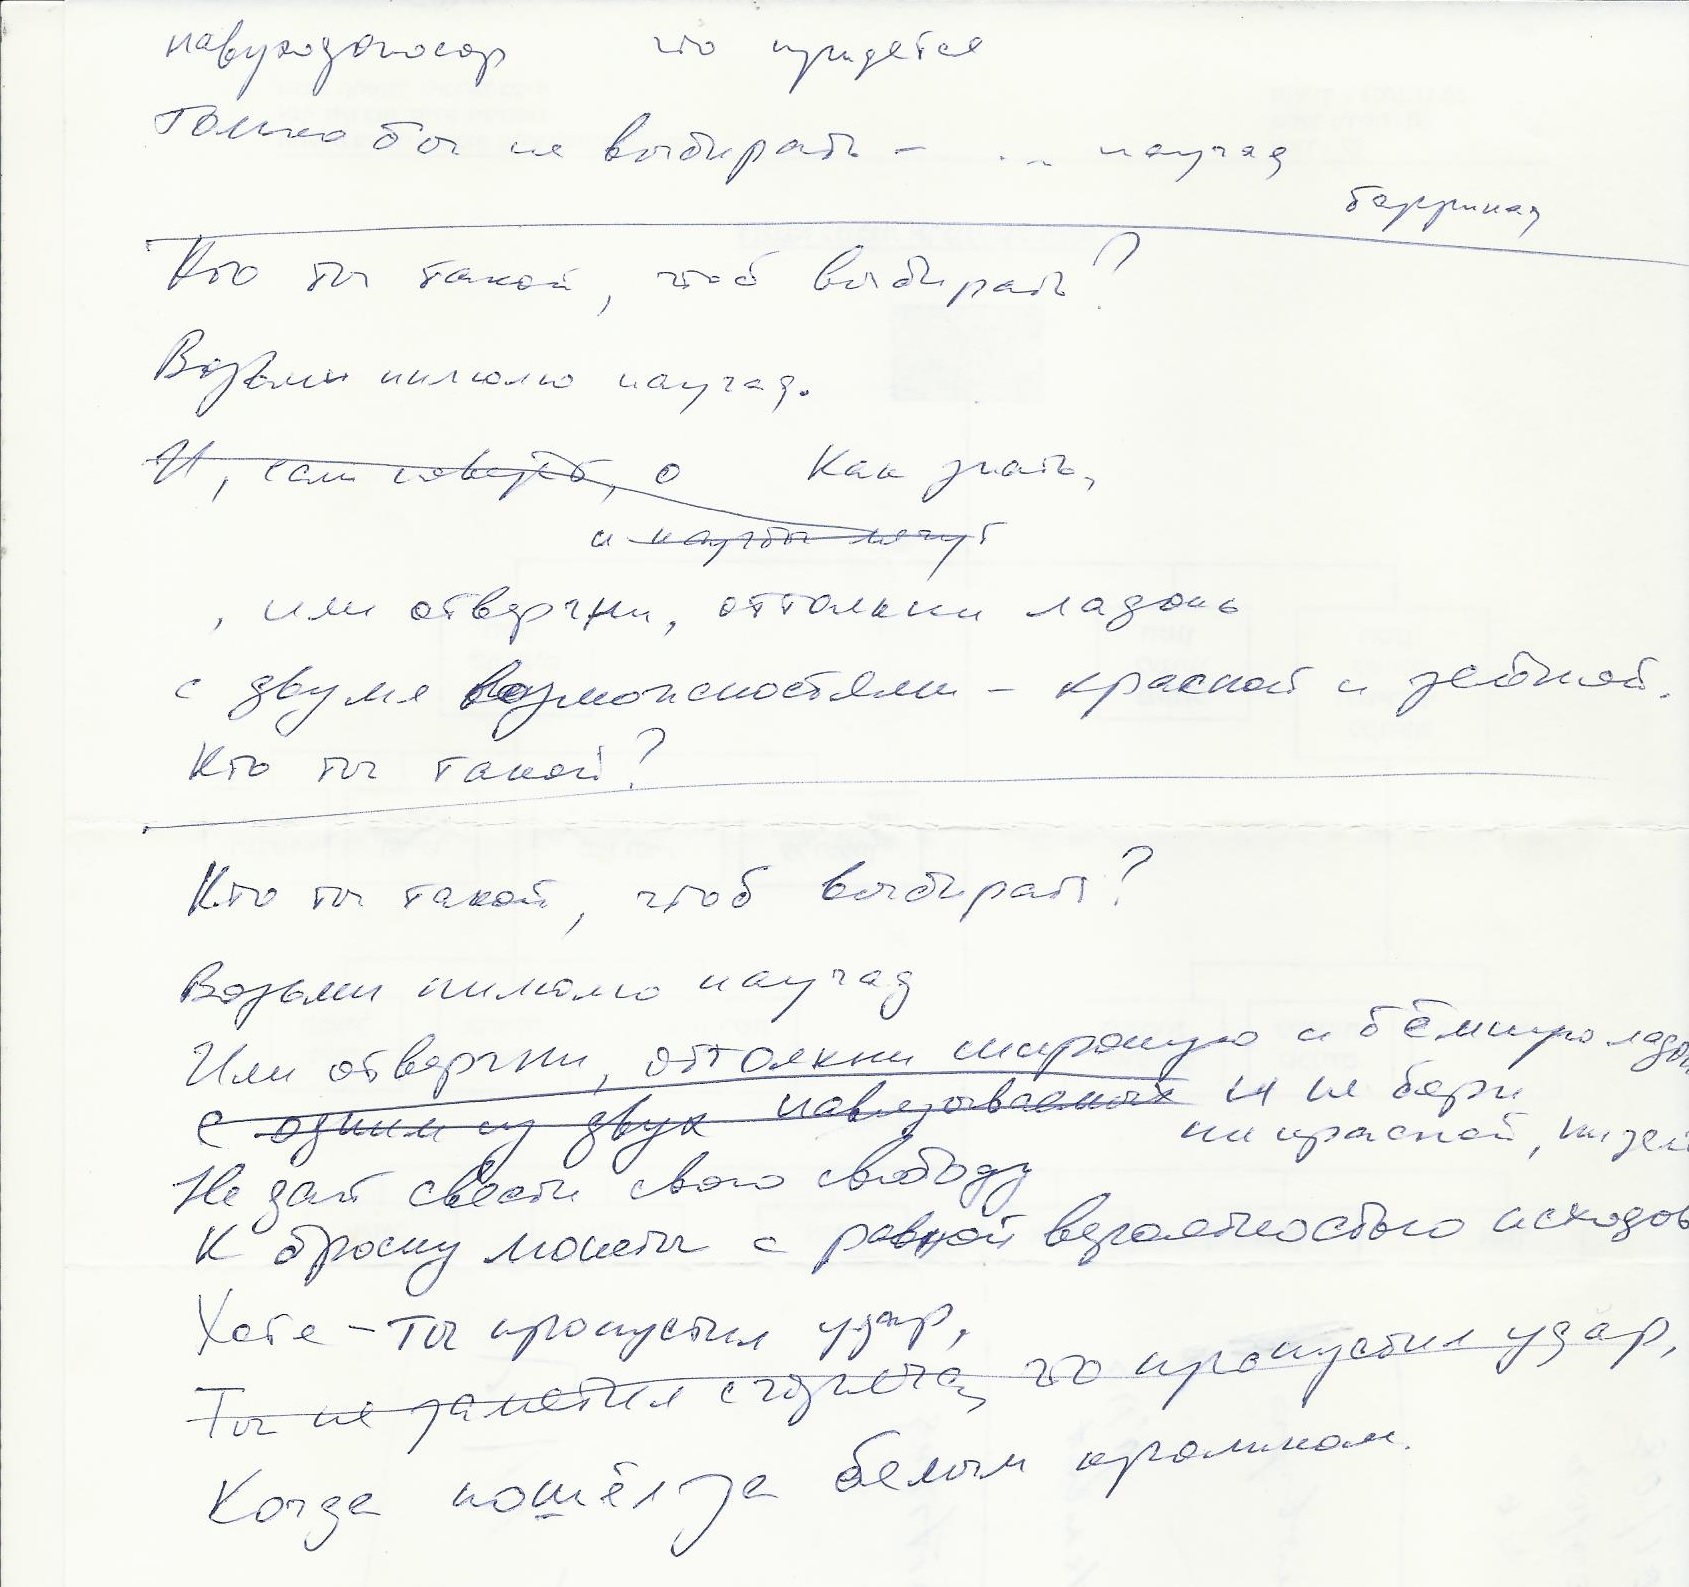 навуходоносор что придётся
Только бы не выбирать – ... наугад
баррикад
Кто ты такой, чтоб выбирать?
Возьми пилюлю наугад.
И, сам новый, о Как знать,
и наугад
, или отвергни, оттолкни ладонь
с двумя возможностями – красной и зелёной.
Кто ты такой?
Кто ты такой, чтоб выбирать?
Возьми пилюлю наугад
Или отвергни, оттолкни широкую и
с одним из двух навязываемых и не бери
ни красной, ни
Не дай свести свою свободу
К броску монеты с равной вероятностью исходов
Хотя – ты пропустил удар,
Ты не заметил сгоряча, что пропустил удар,
Когда пошёл за белым кроликом.